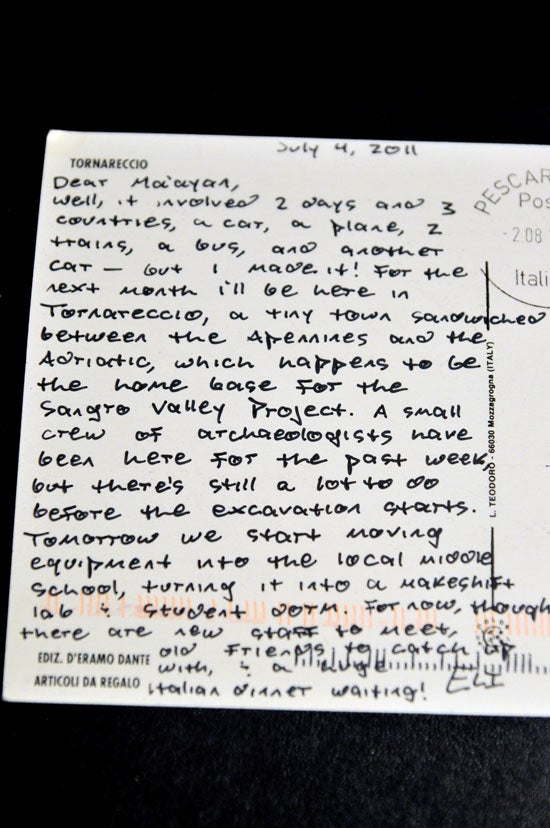 July 4, 2011
TORNARECCIO
Dear Ma'ayan,
Well, it involved 2 days and 3
countries, a car, a plane, 2
trains, a bus, and another
car — but I made it! For the
next month I'll be here in
Tornareccio, a tiny town sandwiched
between the Apennines and the
Adriatic, which happens to be
the home base for the
Sangro Valley Project. A small
crew of archaeologists have
been here for the past week,
but there's still a lot to do
before the excavation starts.
Tomorrow we start moving
equipment into the local middle
school, turning it into a makeshift
lab & student dorm. For now, though
there are new staff to meet,
old friends to catch up
with, & a huge
Italian dinner waiting!
ELI
EDIZ. D'ERAMO DANTE
ARTICOLI DA REGALO
L. TEODORO - 66030 Mozzagrogna (ITALY)
PESCAR
Pos
-2.08
Itali